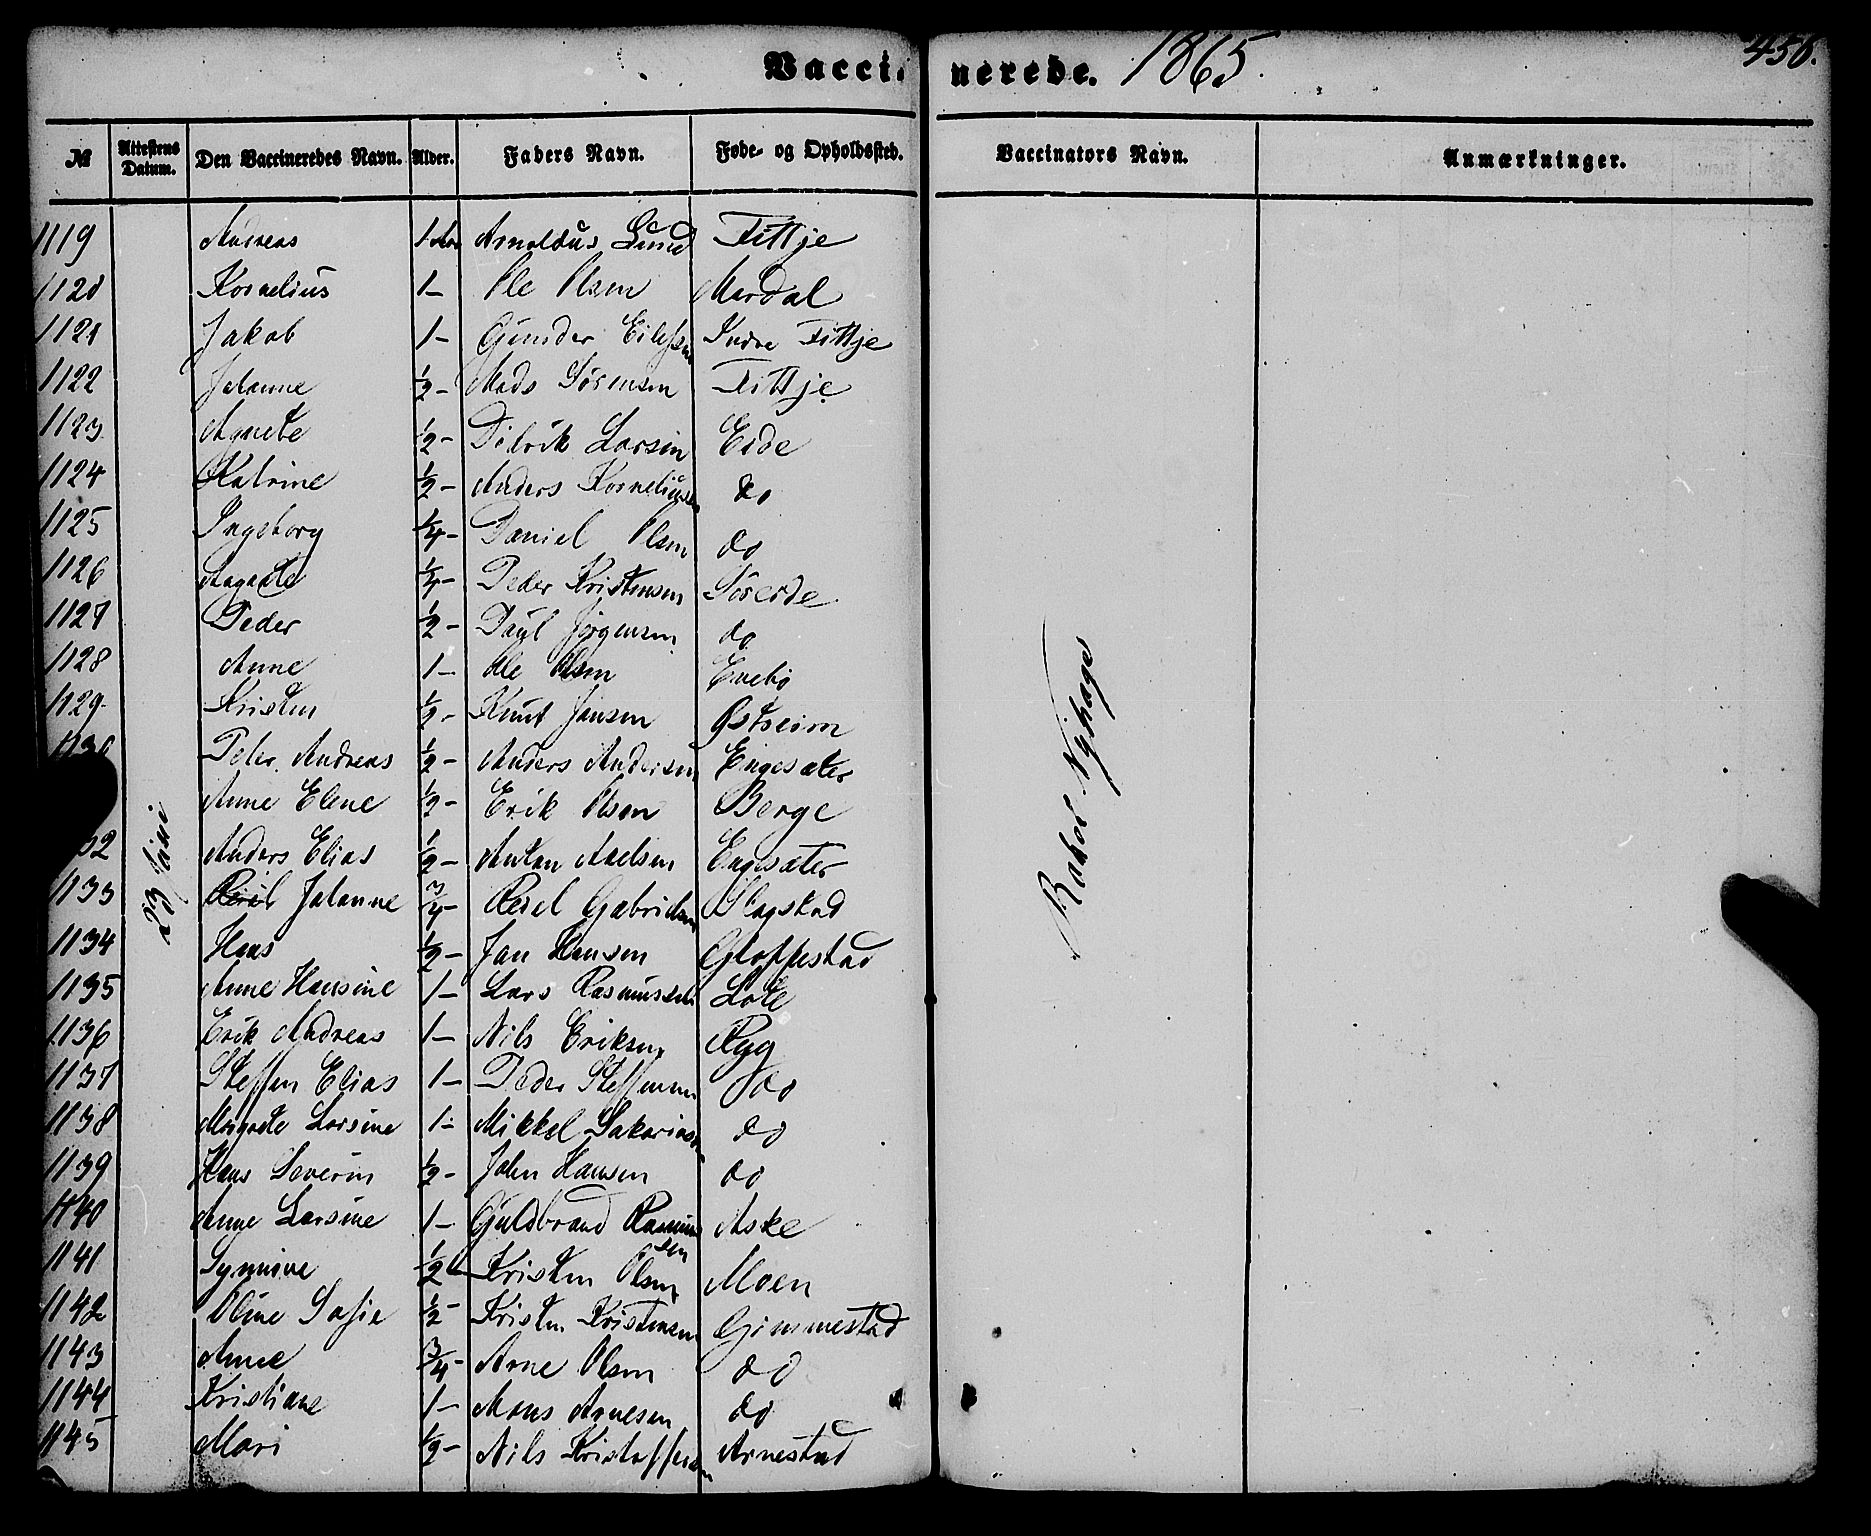 Vaccinerede. 1865. 456.
№ Attestens Datum. Den Vaccineredes Navn. Alder. Faders Navn. Føde- og Opholdssted. Vaccinators Navn. Anmærkninger.
1119 Andreas 1 Aar Arnoldus Lund Fittje
1120 Kornelius 1- Ole Olsen Mardal
1121 Jakob 1- Gunder Eilefsen Indre Fittje
1122 Johanne 1/2- Mads Sörensen Fittje
1123 Agnete 1/2- Didrik Larsen Eide
1124 Katrine 1/2- Anders Korneliusen do
1125 Ingeborg 1/4- Daniel Olsen do
1126 1/4- Peder Kristensen Söreide
1127 Peder 1/2- Paul Jörgensen do
1128 Anne 1- Ole Olsen Enebö
1129 Kristen 1/2- Knut Jansen Østreim
1130 Peter Andreas 1/2- Anders Andersen Engesæter
Anne Elene 1/2- Erik Olsen Berge
32 Anders Elias 1/2- Anton Engesæter
1133 Johanne 3/4- Reiel Gabrielsen Slagstad
1134 Hans 1/2- Jan Hansen Gloppestad
1135 Anne Hansine 1- Lars Rasmussen Lote
1136 Erik Andreas 1- Nils Eriksen Ryg
1137 Steffen Elias 1- Peder Steffensen do
1138 Margrete Larsine 1- Mikkel Sakariasen do
1139 Hans Severin 1/2- John Hansen do
1140 Anne Larsine 1- Guldbrand Rasmussen Aske
1141 Synnive 1/2- Kristen Olsen Moen
1142 Oline Sofie 1/2- Kristen Kristensen Gimmestad
1143 Anne 3/4- Arne Olsen do
1144 Kristiane 1- Mons Arnesen do
1145 Mari 1/2- Nils Kristoffersen Arnestad
23 Juni
Rakel Nyhage